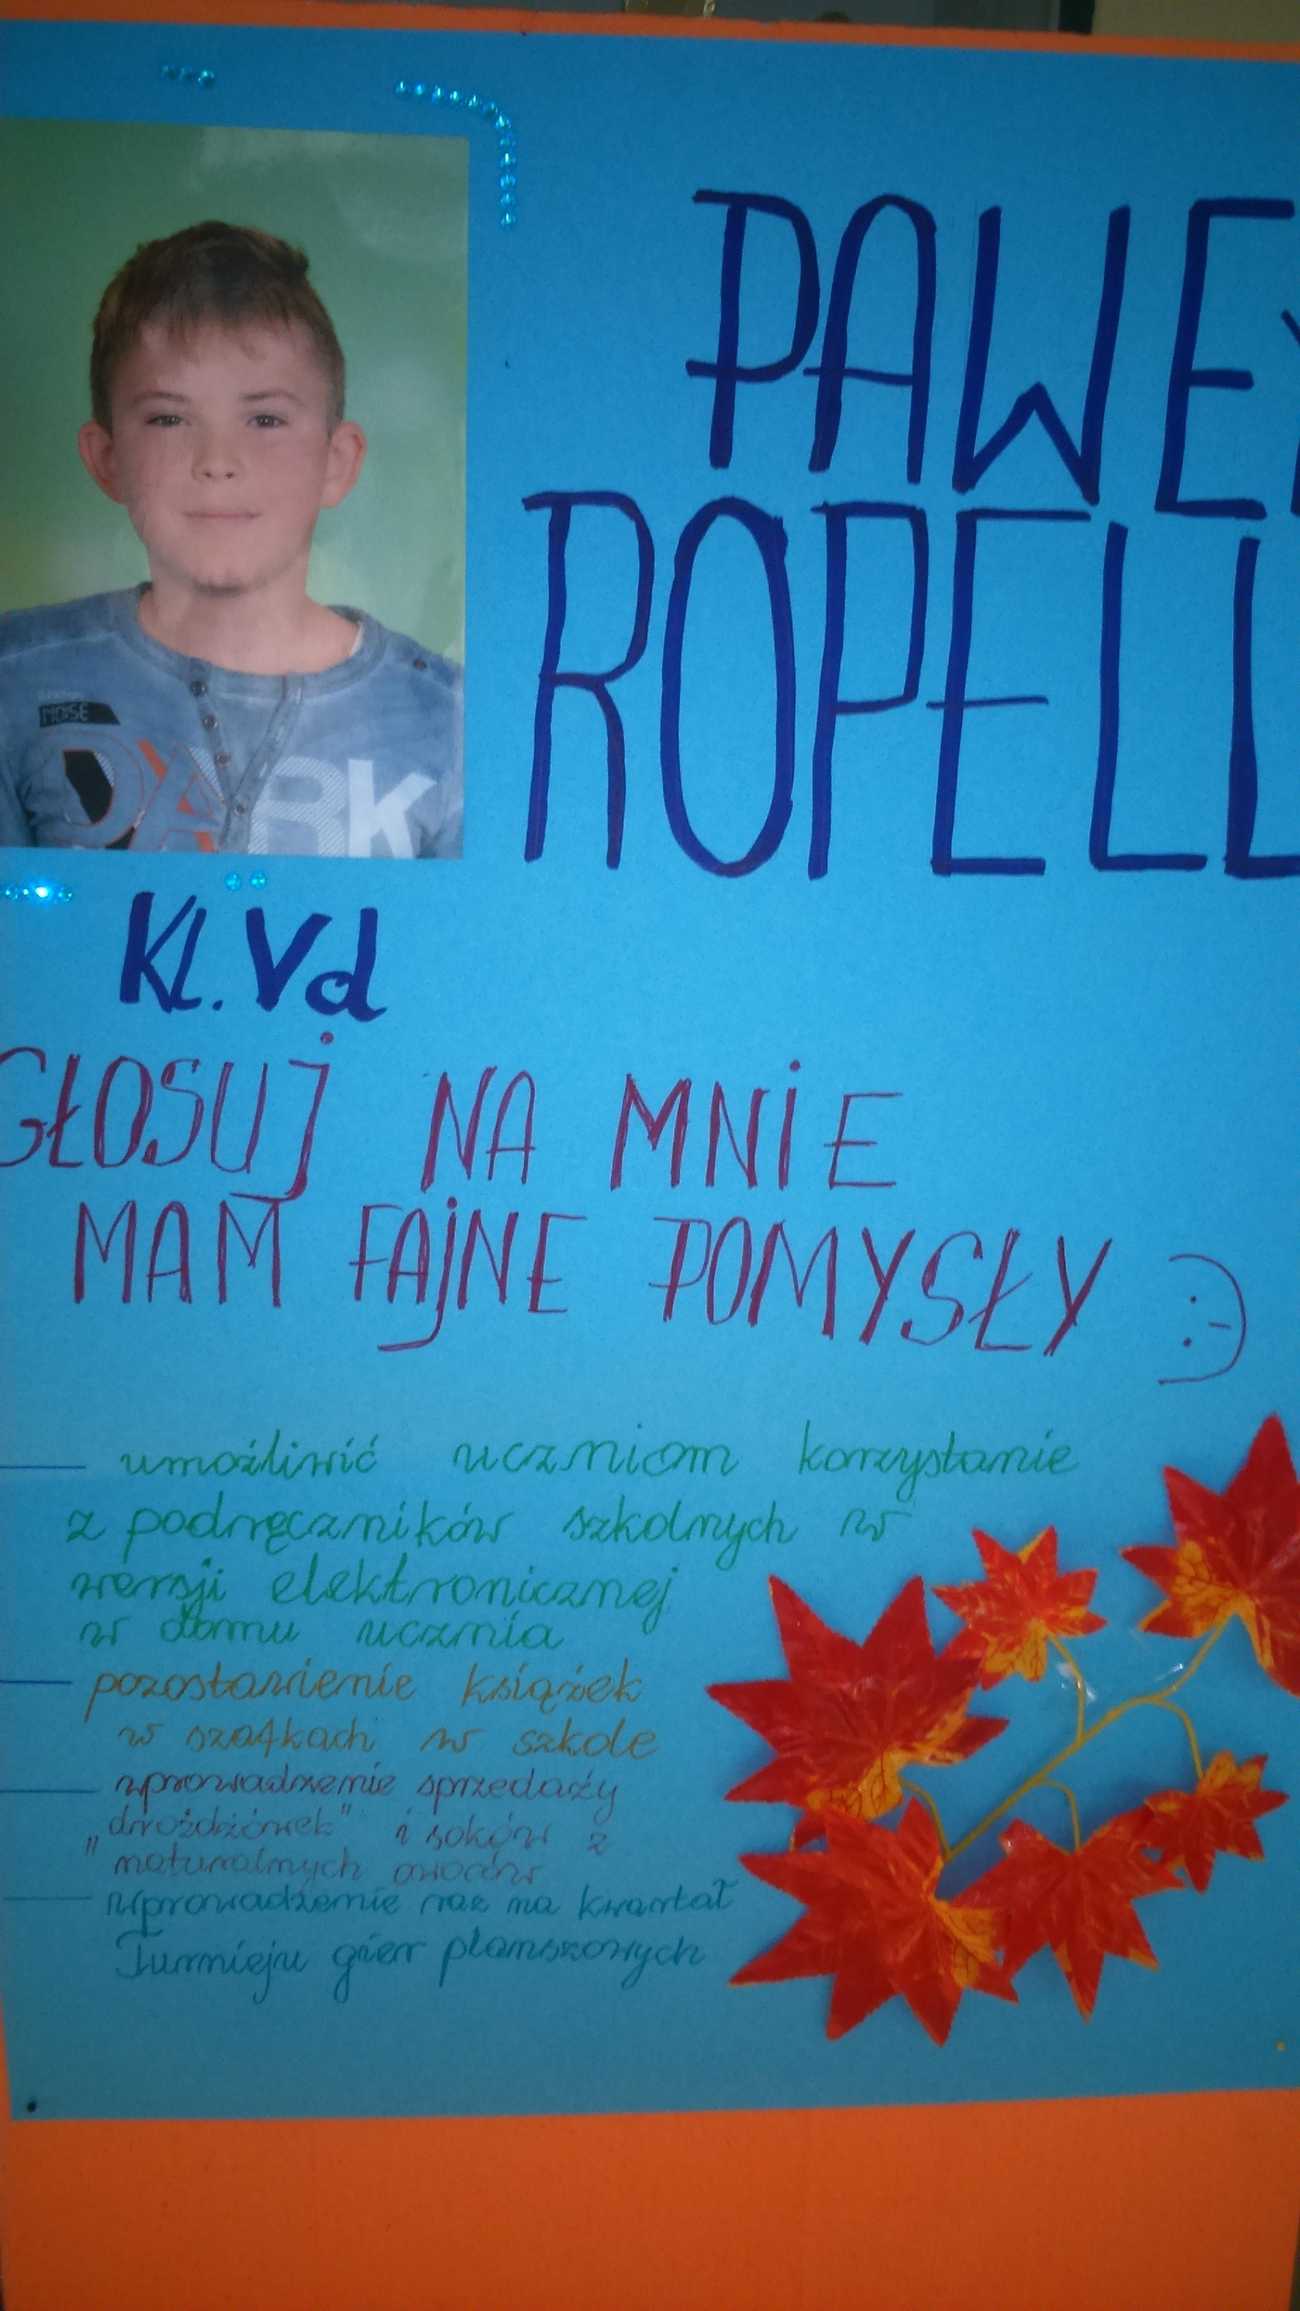 PAWEŁ
ROPELL
NOISE
DARK
KL. Vd
GŁOSUJ NA MNiE
MAM FAjNE POMYSŁY :-)
— umożliwić uczniom korzystanie
z podręczników szkolnych w
wersji elektronicznej
w domu ucznia
— pozostawienie książek
w szafkach w szkole
— wprowadzenie sprzedaży
„drożdżówek" i soków z
naturalnych owoców
— wprowadzenie raz na kwartał
Turnieju gier planszowych